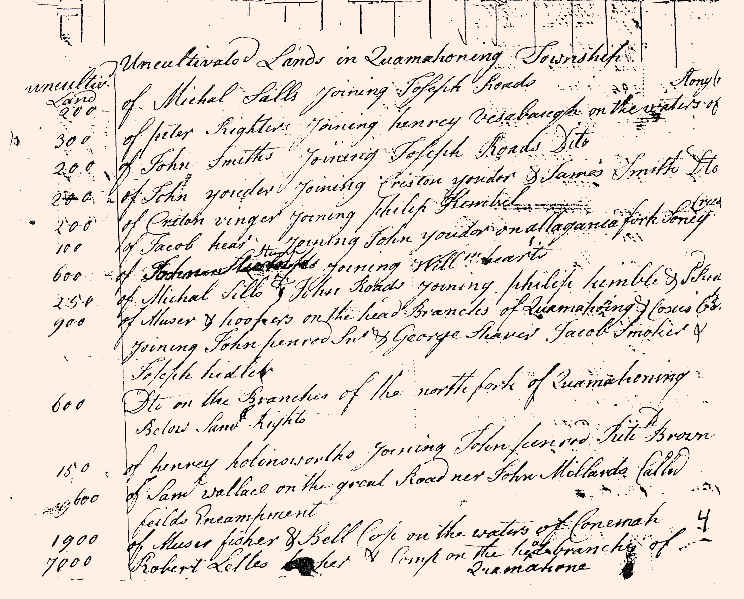 Uncultivated Lands in Quamahoning Township
uncultiv
Land
200 of Michal Salls Joining Joseph Roads
Stony
300 of peter Righters Joining henrey vesabaugh on the waters of
200 of John Smiths Joining Joseph Roads Dito
200 of John youder Joining Criston youder & James Smith Dto
200 of Criton vinger Joining Philip Kembel
100 of Jacob hear Joining John youder on allagania fork Soney
600 of Joining Willm hearts
250 of Michal Sills & John Roads Joining philip kimble &
900 of Muser & hoofers on the head Branches of Quamahoning &
Joining John penrod Snr & George Shaver Jacob Smoker &
Joseph hedler
600 Dto on the Branches of the north fork of Quamahoning
Below Saml Rights
150 of henrey holinsworths Joining John penrod Brown
600 of Saml wallace on the great Road ner John Millards Calld
feilds Encampment
1900 of Muser fisher & Bell Cop on the waters of Conemah
4
7000 Robert Lelles & Comp on the branches of
Quamahone